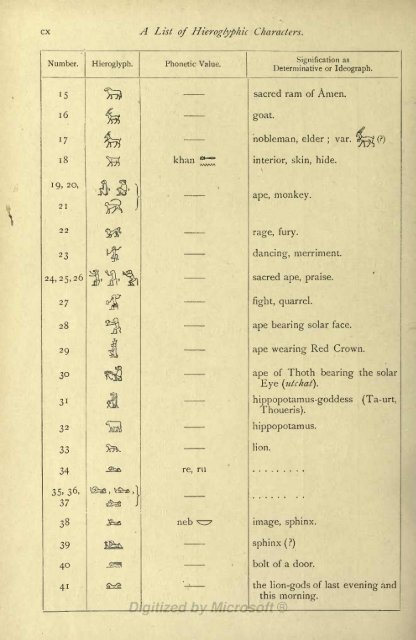 cx A List of Hieroglyphic Characters.
Number. Hieroglyph. Phonetic Value. Signification as Determinative or Ideograph.
15 — sacred ram of Åmen.
16 — goat.
17 — nobleman, elder ; var. (?)
18 khan interior, skin, hide.
19, 20,
21 — ape, monkey.
22 — rage, fury.
23 — dancing, merriment.
24, 25, 26 — sacred ape, praise.
27 — fight, quarrel.
28 — ape bearing solar face.
29 — ape wearing Red Crown.
30 — ape of Thoth bearing the solar
Eye (utchat).
31 — hippopotamus-goddess (Ta-urt,
Thoueris).
32 — hippopotamus.
33 — lion.
34 re, ru . . . . . . . . .
35, 36,
37 — . . . . . .
38 neb image, sphinx.
39 — sphinx (?)
40 — bolt of a door.
41 — the lion-gods of last evening and
this morning.
Digitized by Microsoft ®